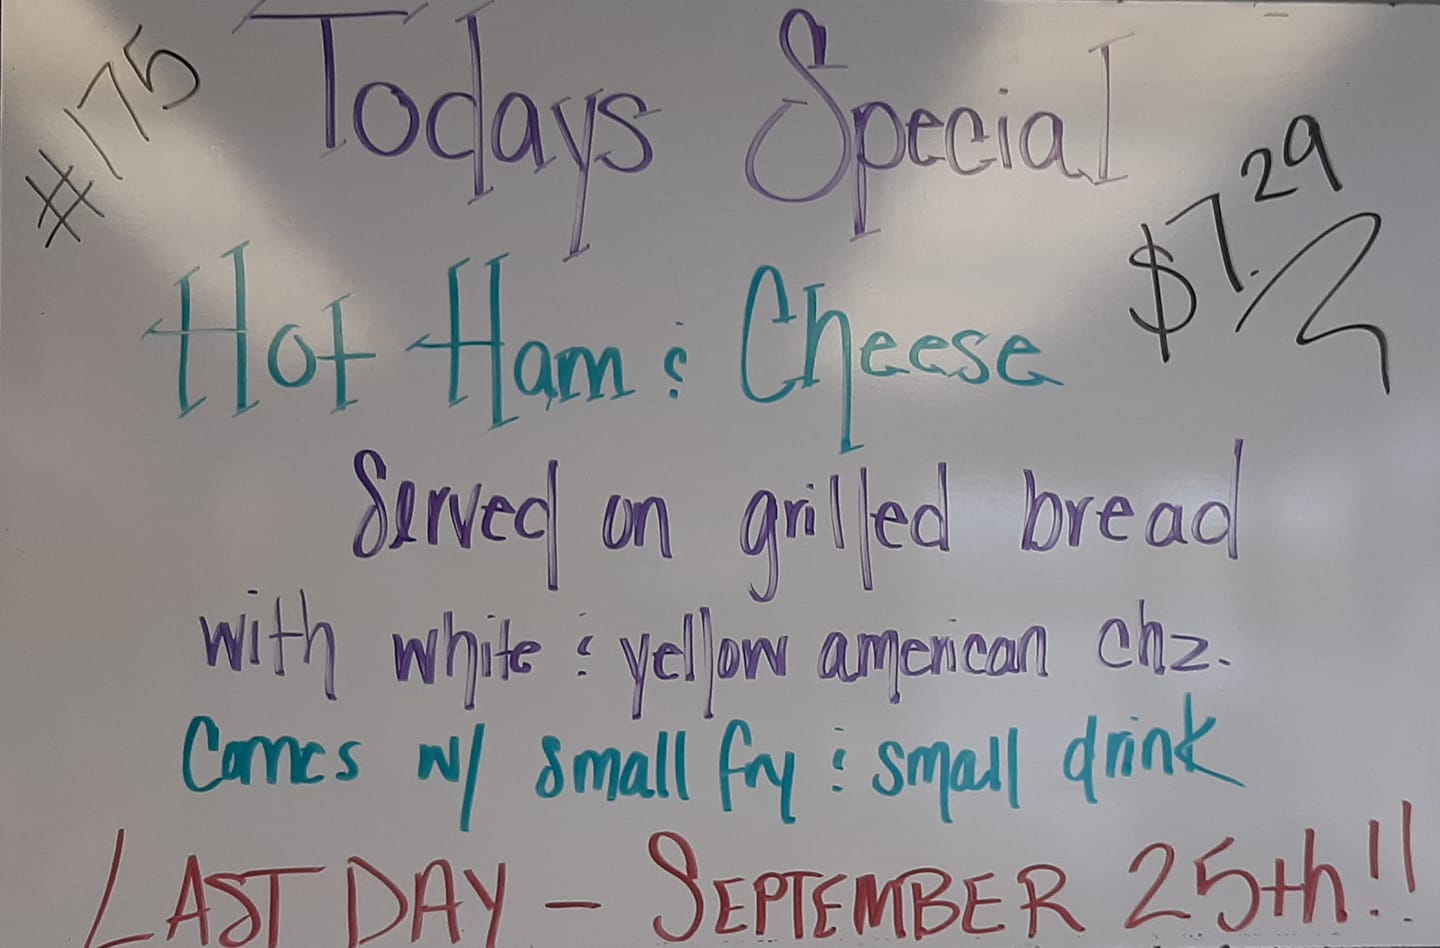 #175
Todays Special
$7.29
Hot Ham & Cheese
Served on grilled bread
with white & yellow american chz.
Comes w/ small fry & small drink
LAST DAY - SEPTEMBER 25th!!